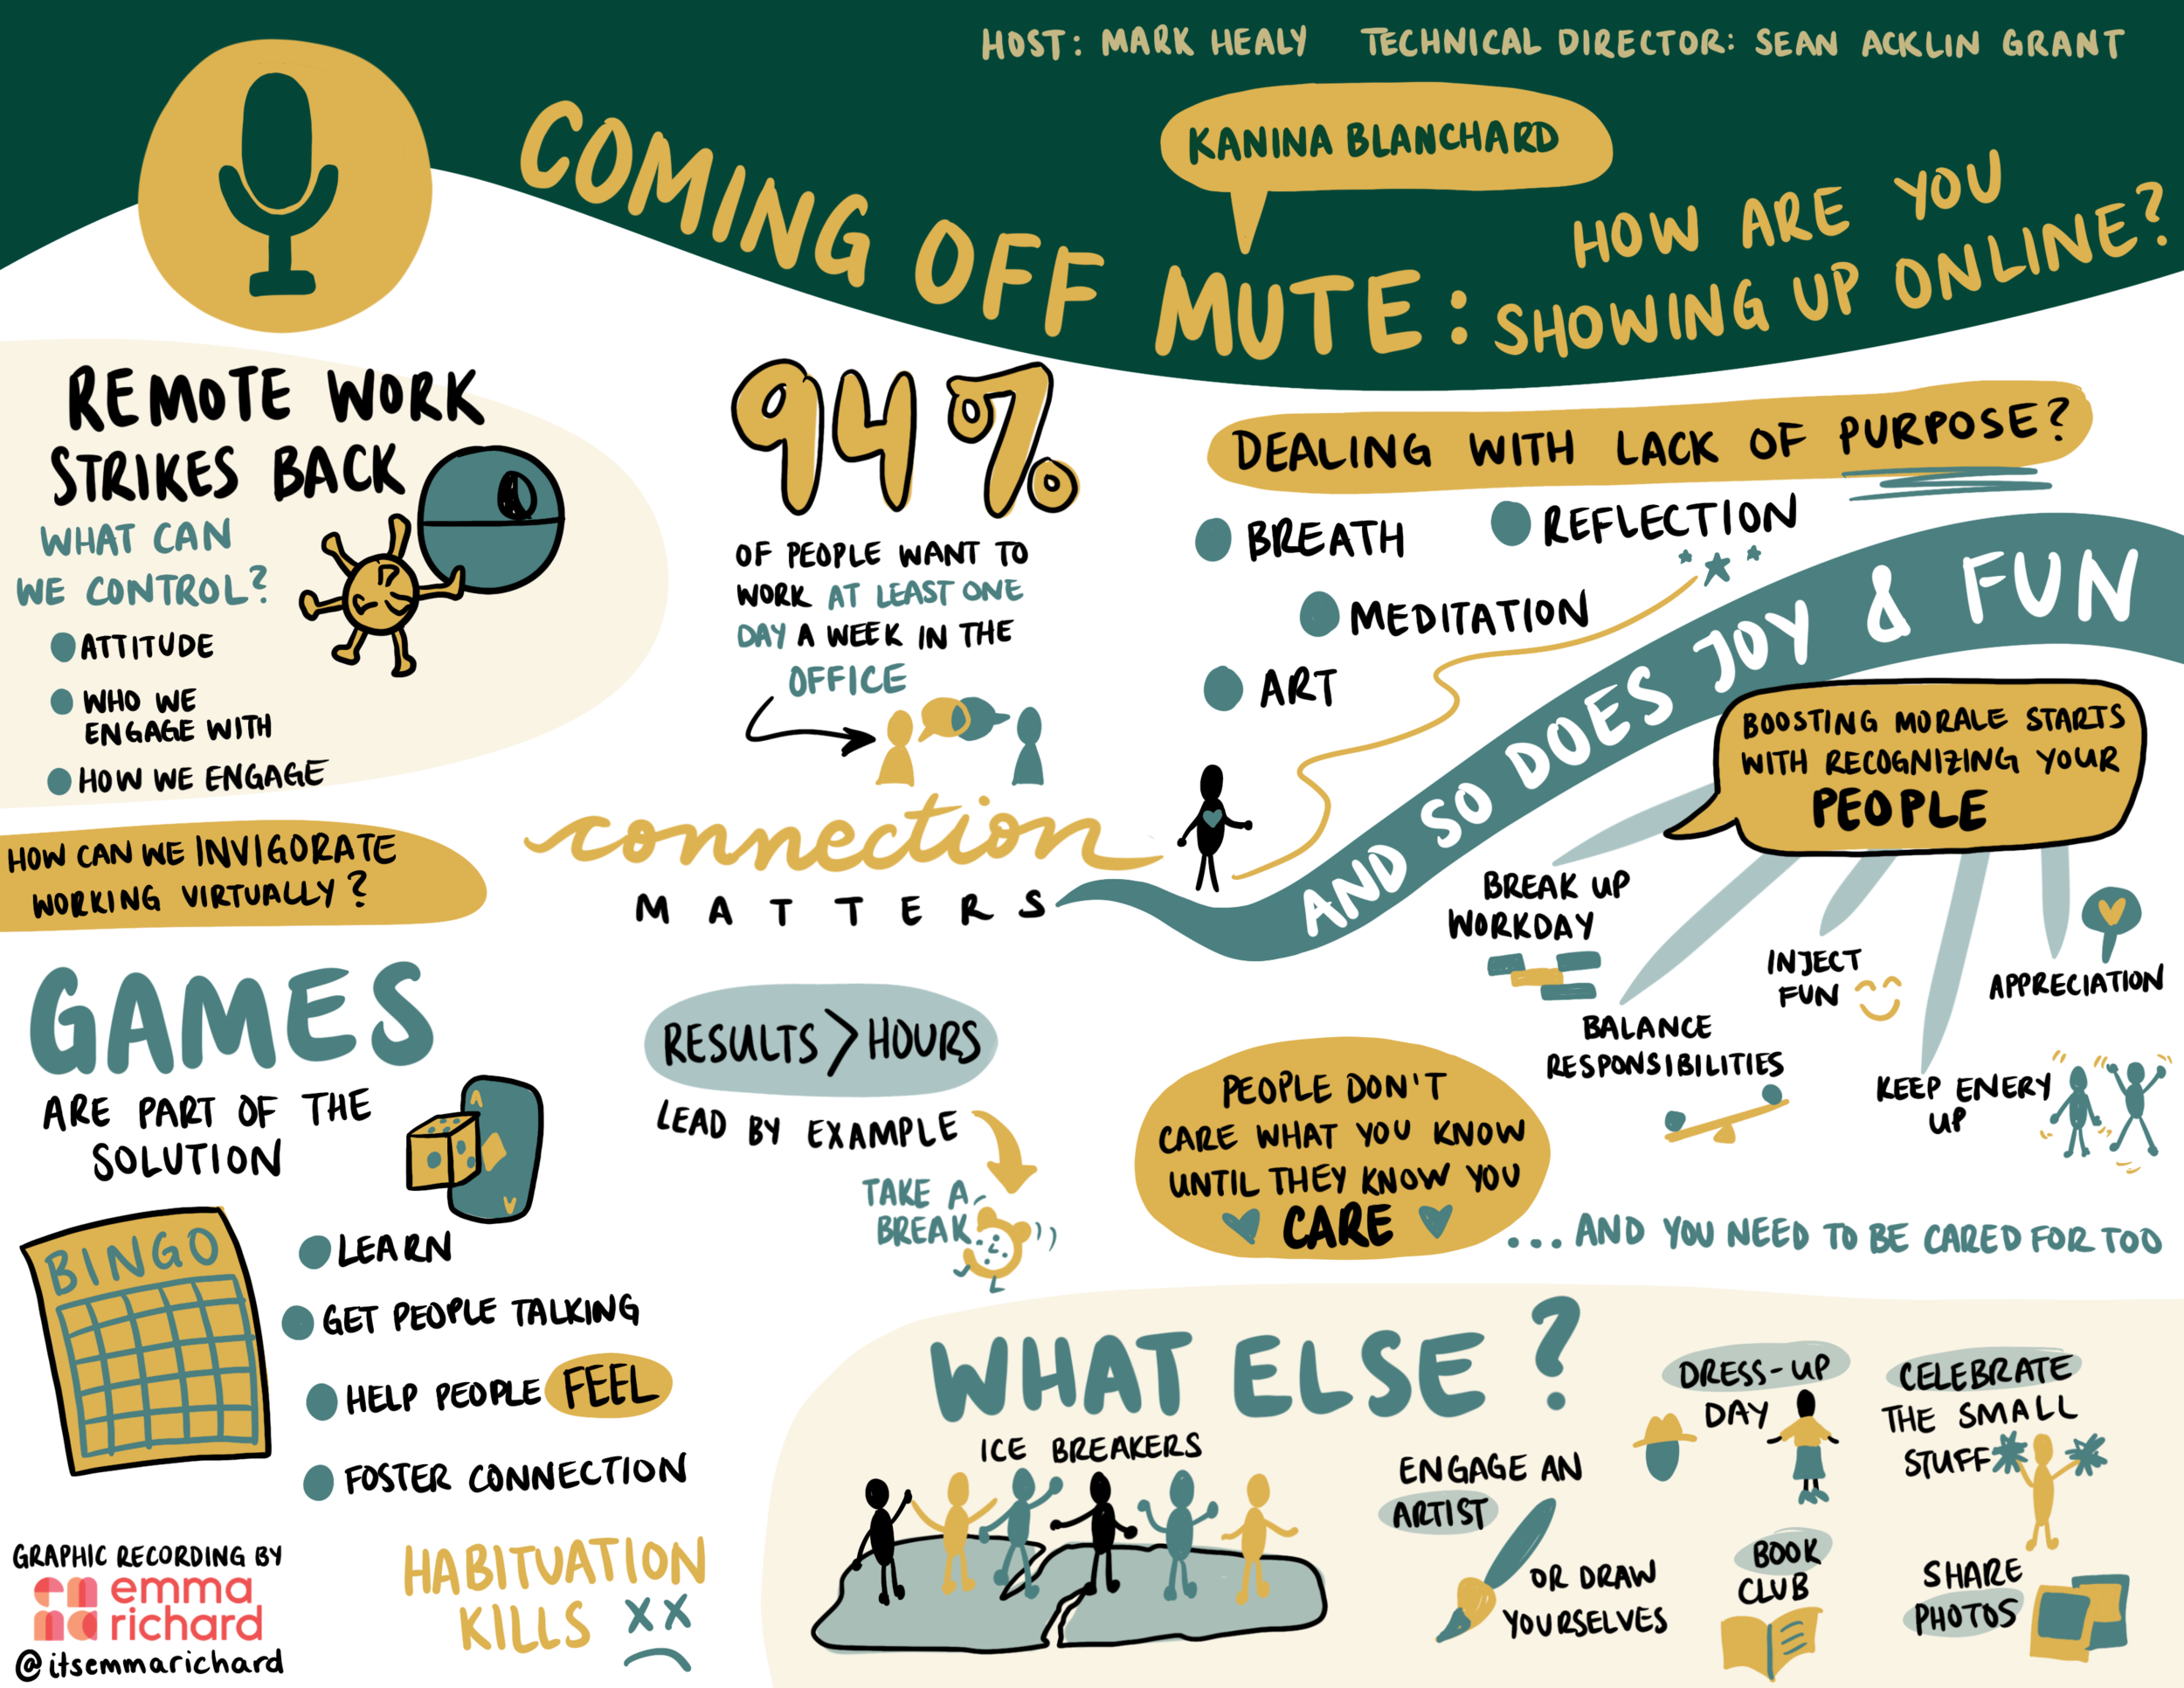 HOST: MARK HEALY TECHNICAL DIRECTOR: SEAN ACKLIN GRANT
KANINA BLANCHARD
COMING OFF MUTE:
HOW ARE YOU
SHOWING UP ONLINE?
REMOTE WORK
STRIKES BACK
WHAT CAN
WE CONTROL?
ATTITUDE
WHO WE
ENGAGE WITH
HOW WE ENGAGE
94%
OF PEOPLE WANT TO
WORK AT LEAST ONE
DAY A WEEK IN THE
OFFICE
connection
MATTERS
AND SO DOES JOY & FUN
DEALING WITH LACK OF PURPOSE?
BREATH
REFLECTION
MEDITATION
ART
BOOSTING MORALE STARTS
WITH RECOGNIZING YOUR
PEOPLE
BREAK UP
WORKDAY
BALANCE
RESPONSIBILITIES
INJECT
FUN
KEEP ENERY
UP
APPRECIATION
HOW CAN WE INVIGORATE
WORKING VIRTUALLY?
GAMES
ARE PART OF THE
SOLUTION
A
A
BINGO
LEARN
GET PEOPLE TALKING
HELP PEOPLE FEEL
FOSTER CONNECTION
HABITUATION
KILLS
RESULTS > HOURS
LEAD BY EXAMPLE
TAKE A
BREAK
PEOPLE DON'T
CARE WHAT YOU KNOW
UNTIL THEY KNOW YOU
CARE
...AND YOU NEED TO BE CARED FOR TOO
WHAT ELSE?
ICE BREAKERS
ENGAGE AN
ARTIST
OR DRAW
YOURSELVES
DRESS-UP
DAY
BOOK
CLUB
CELEBRATE
THE SMALL
STUFF
SHARE
PHOTOS
GRAPHIC RECORDING BY
emma
richard
@itsemmarichard